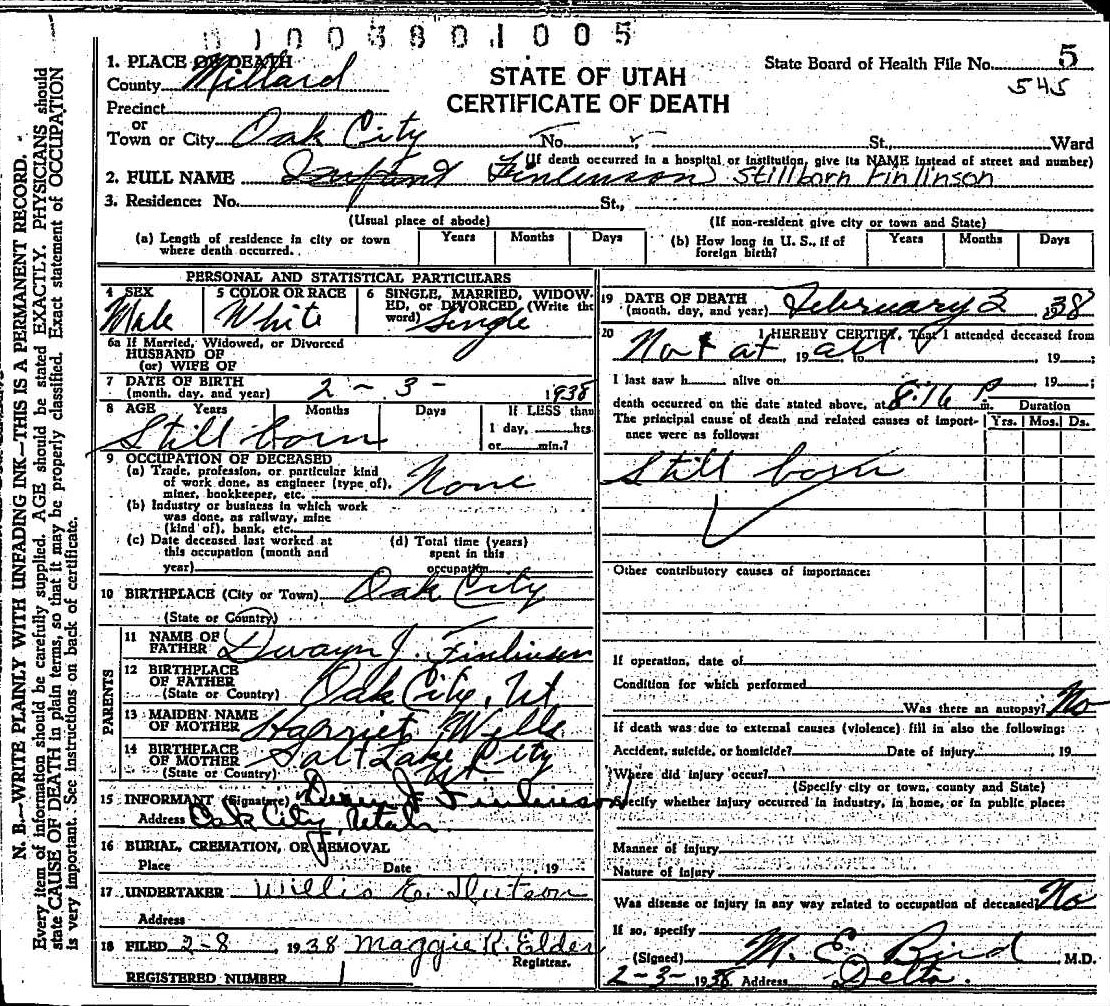 0 1 0 0 3 8 0 1 0 0 5
1. PLACE OF DEATH
County Millard
STATE OF UTAH
CERTIFICATE OF DEATH
State Board of Health File No. 5
545
Precinct
or
Town or City Oak City No. St., Ward
(If death occurred in a hospital or institution, give its NAME instead of street and number)
2. FULL NAME Infant Finlinson Stillborn Finlinson
3. Residence: No. St.,
(Usual place of abode) (If non-resident give city or town and State)
(a) Length of residence in city or town where death occurred. Years Months Days
(b) How long in U. S., if of foreign birth? Years Months Days
PERSONAL AND STATISTICAL PARTICULARS
4 SEX Male
5 COLOR OR RACE White
6 SINGLE, MARRIED, WIDOWED, or DIVORCED (Write the word) Single
6a If Married, Widowed, or Divorced
HUSBAND OF
(or) WIFE OF
7 DATE OF BIRTH (month, day, and year) 2 - 3 - 1938
8 AGE Years Months Days If LESS than 1 day, hrs. or min.?
Still born
9 OCCUPATION OF DECEASED
(a) Trade, profession, or particular kind of work done, as engineer (type of), miner, bookkeeper, etc. None
(b) Industry or business in which work was done, as railway, mine (kind of), bank, etc.
(c) Date deceased last worked at this occupation (month and year)
(d) Total time (years) spent in this occupation
10 BIRTHPLACE (City or Town) Oak City
(State or Country)
PARENTS
11 NAME OF FATHER Dwayn J. Finlinson
12 BIRTHPLACE OF FATHER (State or Country) Oak City, Ut
13 MAIDEN NAME OF MOTHER Harriet Wells
14 BIRTHPLACE OF MOTHER (State or Country) Salt Lake City Ut
15 INFORMANT (Signature) J Finlinson
Address Oak City, Utah
16 BURIAL, CREMATION, OR REMOVAL
Place Date 19
17 UNDERTAKER Willis E. Dutson
Address
18 FILED 2-8 1938 Maggie R. Elder
Registrar.
REGISTERED NUMBER 1
19 DATE OF DEATH (month, day, and year) February 3 1938
20 I HEREBY CERTIFY, That I attended deceased from
Not at 19 all to 19 ;
I last saw h alive on 19 ;
death occurred on the date stated above, at 8:16 P m.
Duration
The principal cause of death and related causes of importance were as follows: Yrs. Mos. Ds.
Still born
Other contributory causes of importance:
If operation, date of
Condition for which performed
Was there an autopsy? No
If death was due to external causes (violence) fill in also the following:
Accident, suicide, or homicide? Date of injury 19
Where did injury occur?
(Specify city or town, county and State)
Specify whether injury occurred in industry, in home, or in public place:
Manner of injury
Nature of injury
Was disease or injury in any way related to occupation of deceased? No
If so, specify
(Signed) M. E. Bird M.D.
2-3-1938 Address Delta.
N. B.—WRITE PLAINLY WITH UNFADING INK—THIS IS A PERMANENT RECORD.
Every item of information should be carefully supplied. AGE should be stated EXACTLY. PHYSICIANS should
state CAUSE OF DEATH in plain terms, so that it may be properly classified. Exact statement of OCCUPATION
is very important. See instructions on back of certificate.